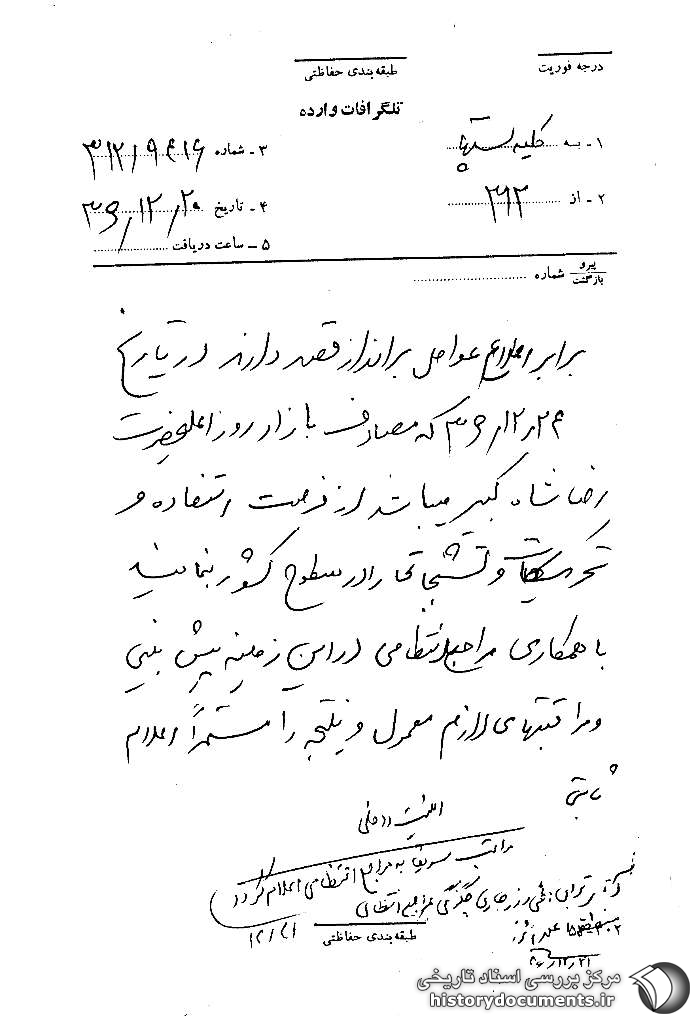 درجه فوریت
طبقه‌بندی حفاظتی
تلگرافات وارده
۱ - به کلیه
۳ - شماره ۳۱۲/۹۴۱۶
۲ - از ۳۱۲
۴ - تاریخ ۳۶/۱۲/۲۰
۵ - ساعت دریافت
پیرو
بازگشت
شماره
برابر اطلاع عوامل برانداز قصد دارند در تاریخ
۳۶/۱۲/۲۴ که مصادف با زاد روز اعلیحضرت
رضا شاه کبیر میباشد از فرصت استفاده و
تحریکات و تشنجاتی را در سطوح کشور بنمایند
با همکاری مراجع انتظامی در این زمینه پیش بینی
و مراقبتهای لازم معمول و نتیجه را مستمراً اعلام
ثابتی
امنیت داخلی
مراتب سریعاً به مراجع انتظامی اعلام گردد
۱۲/۲۱
طبقه‌بندی حفاظتی
۳۶/۱۲/۲۱
مرکز بررسی اسناد تاریخی
historydocuments.ir